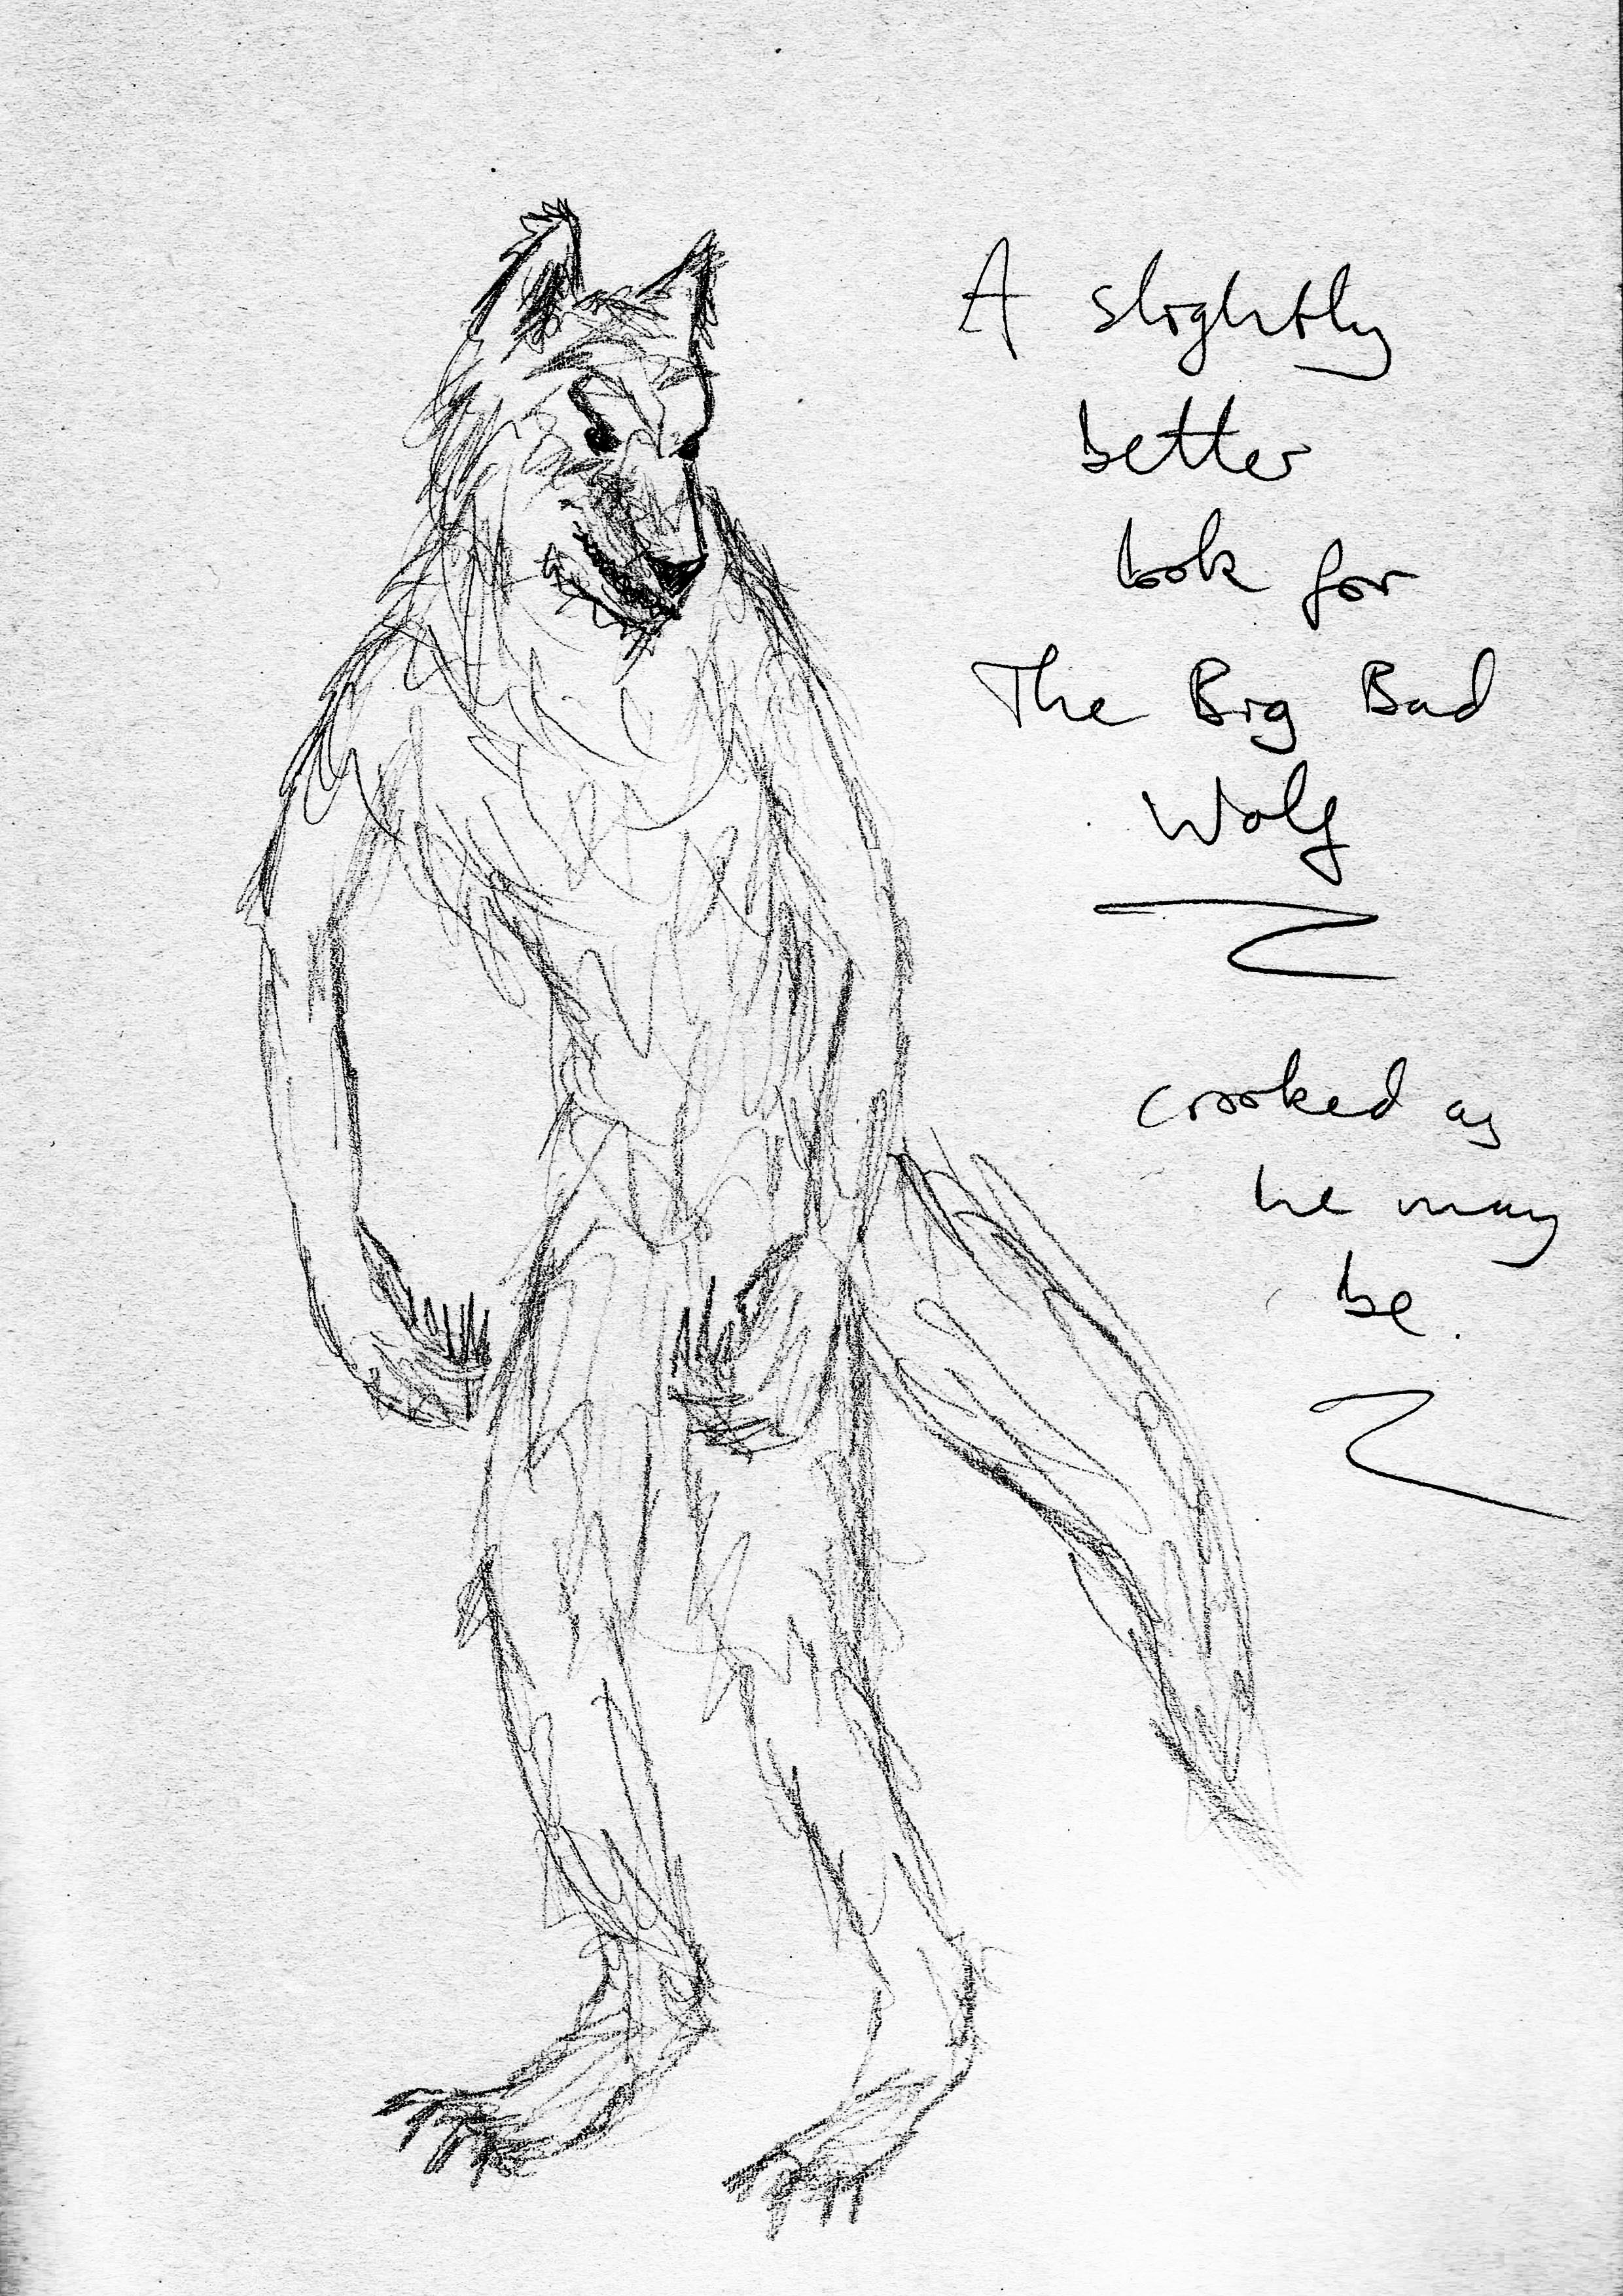 A slightly
better
look for
The Big Bad
Wolf
crooked as
he may
be.